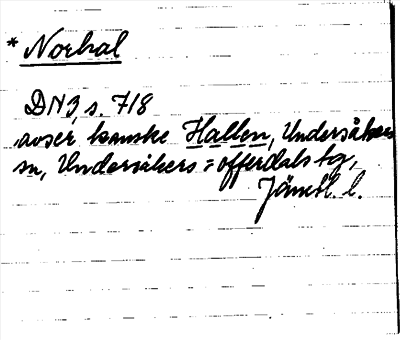 * Norhal
DN3, s. 718
avser kanske Hallen, Undersåkers
sn, Undersåkers = offerdals tg,
Jämtl. l.